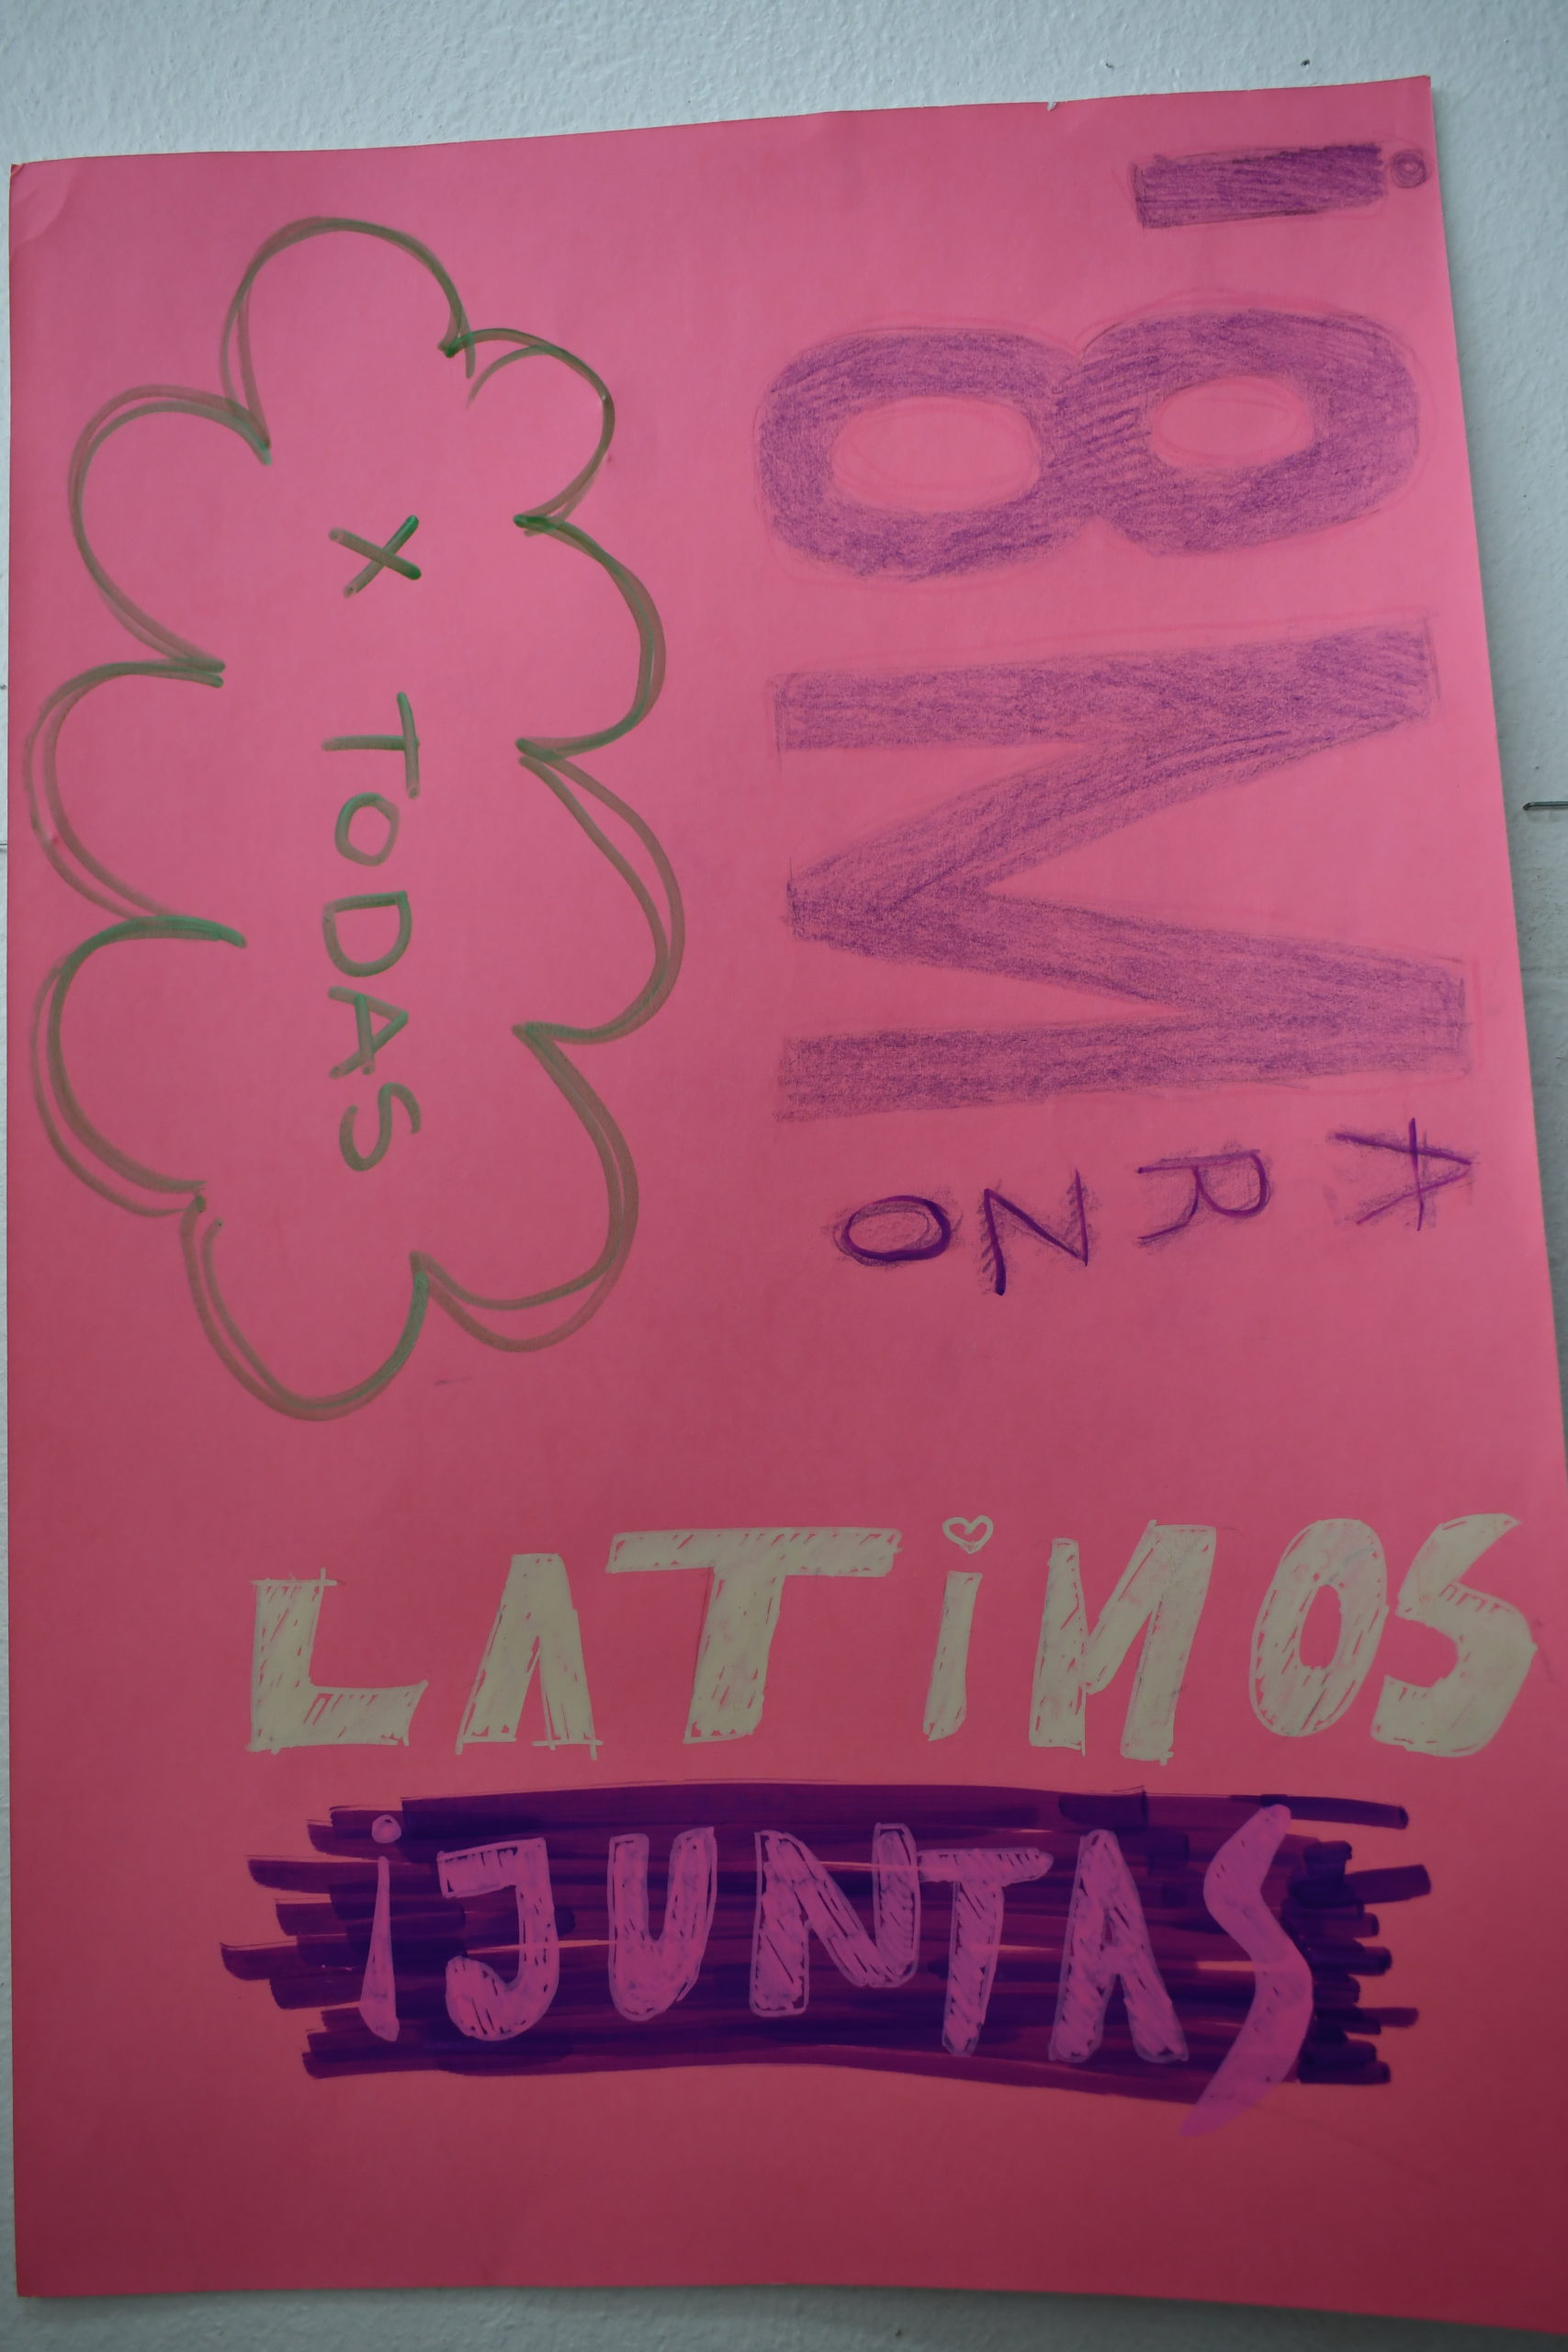 ¡8 MARZO
X TODAS
LATiMOS
¡JUNTAS